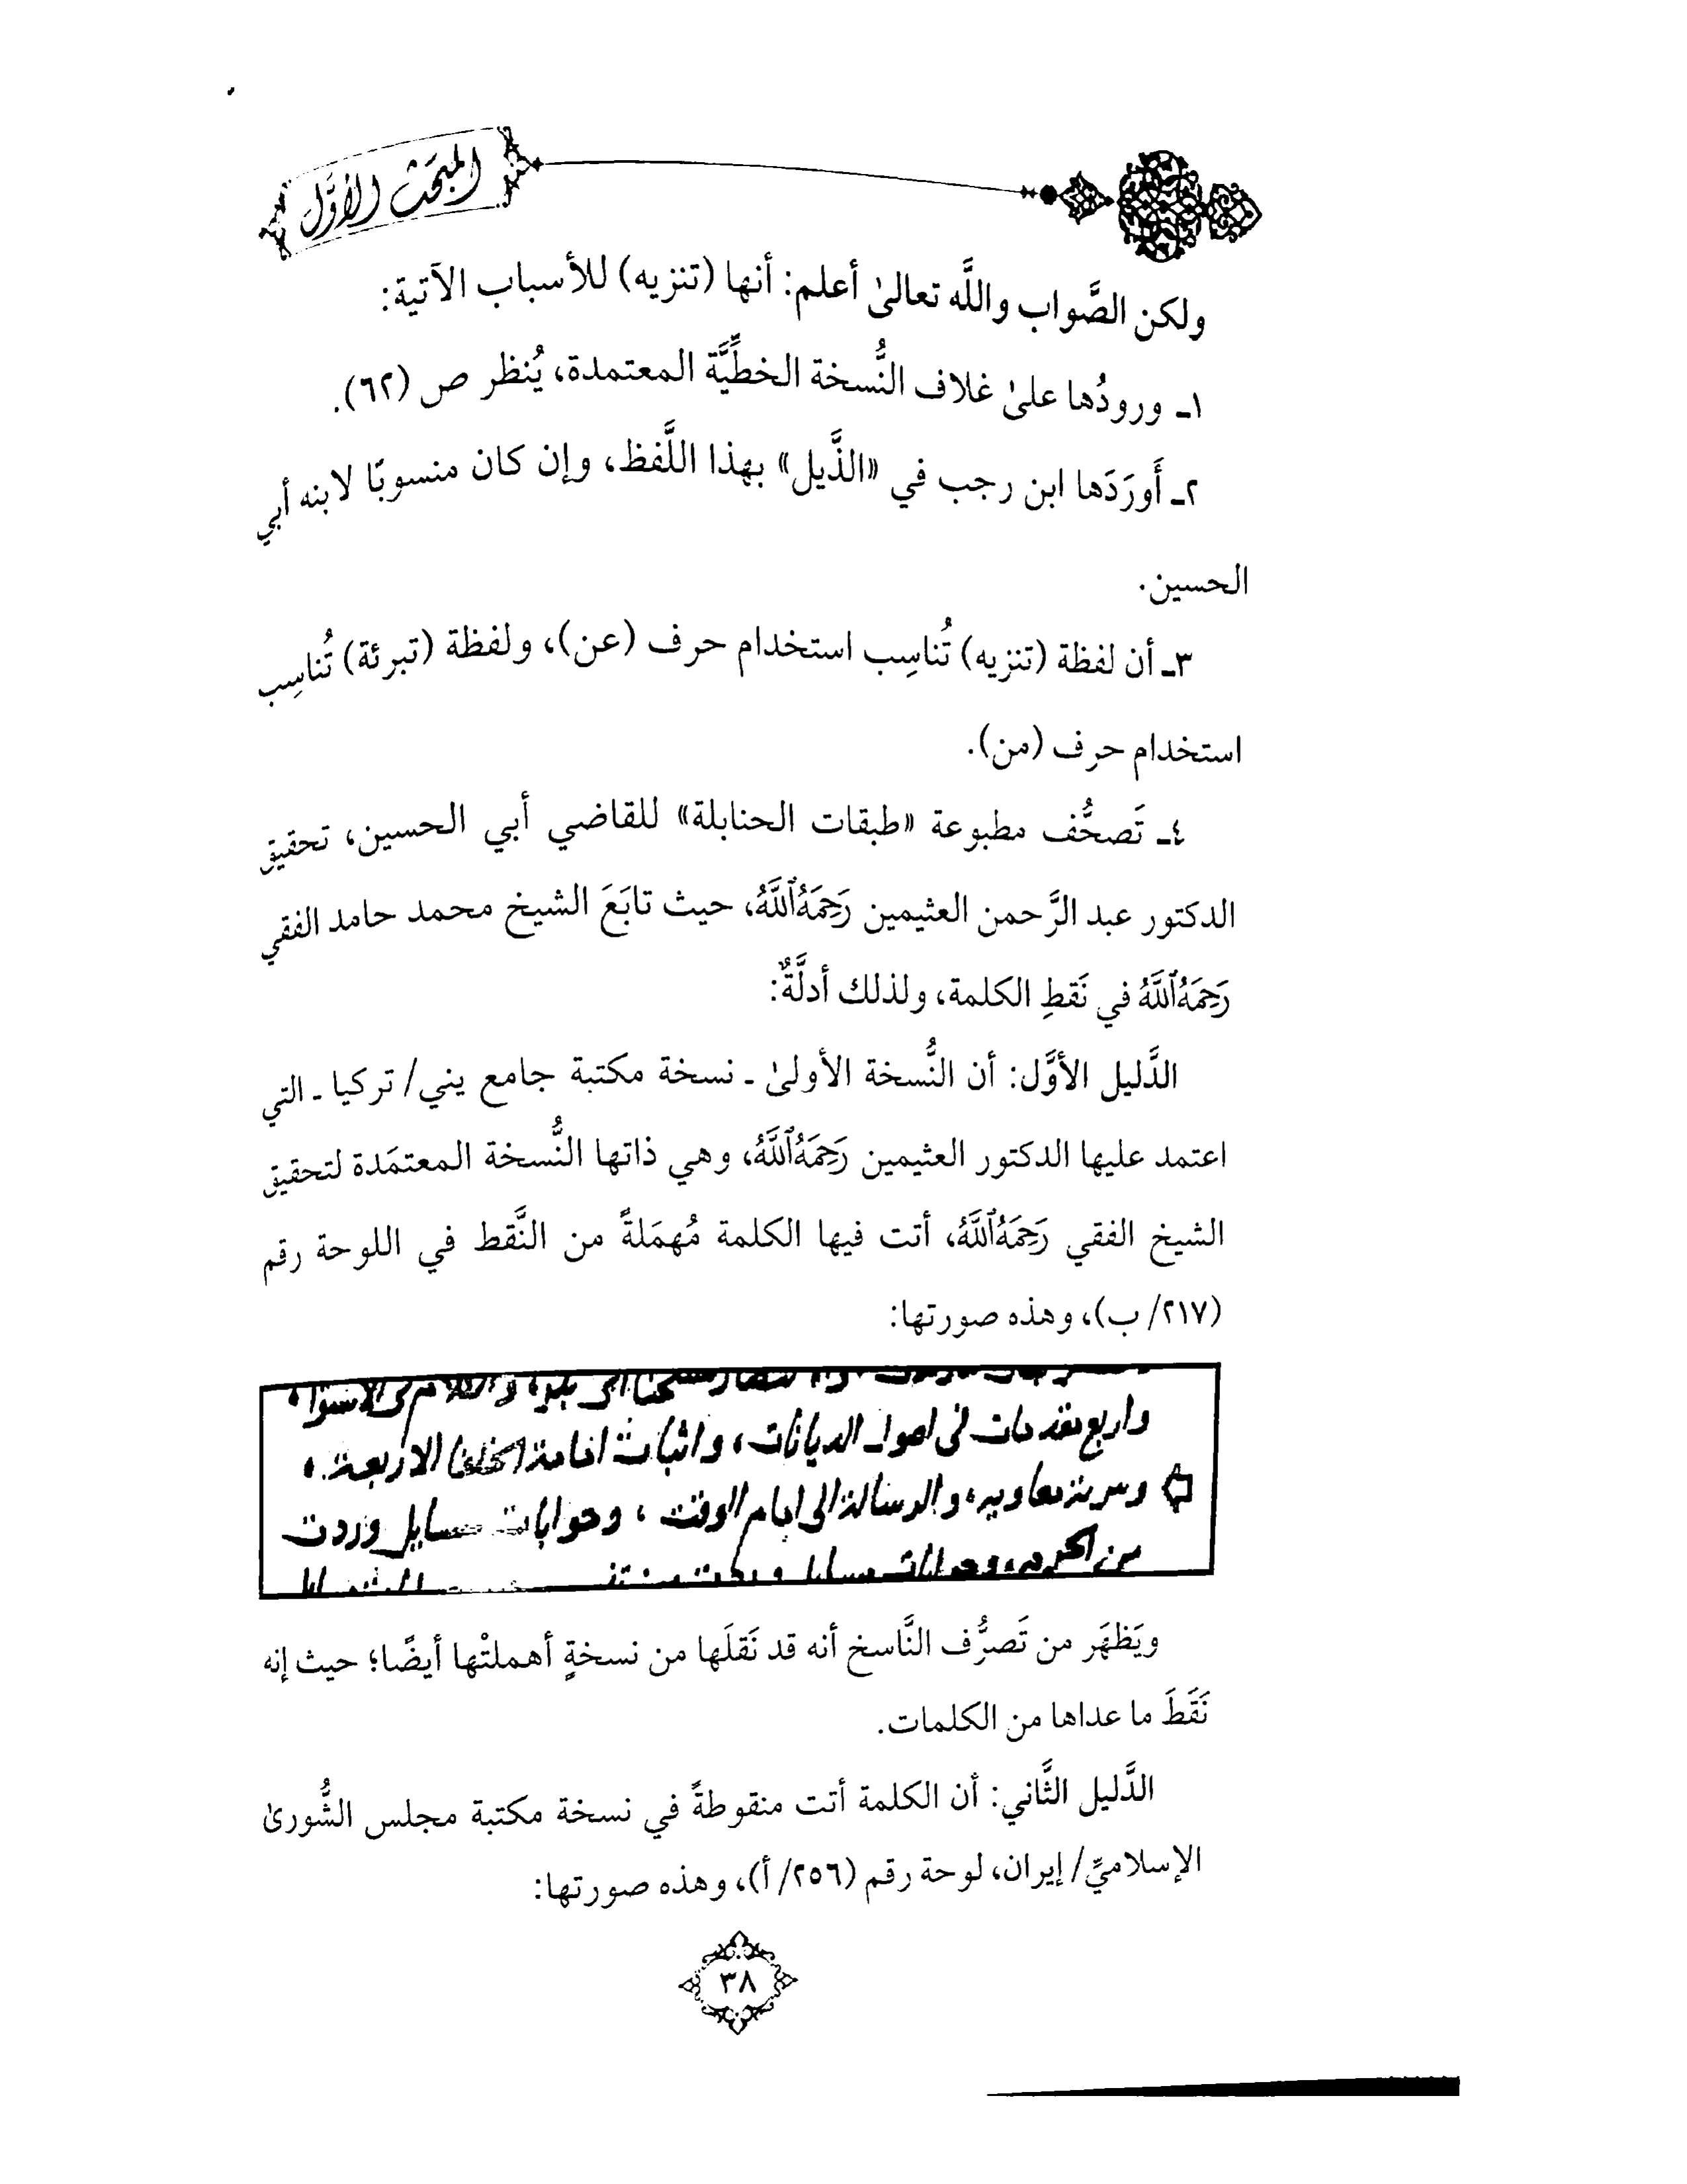 المبحث الأول
ولكن الصَّواب واللَّه تعالىٰ أعلم: أنها (تنزيه) للأسباب الآتية:
١ـ ورودُها علىٰ غلاف النُّسخة الخطِّيَّة المعتمدة، يُنظر ص (٦٢).
٢ـ أَورَدَها ابن رجب في «الذَّيل» بهذا اللَّفظ، وإن كان منسوبًا لابنه أبي
الحسين.
٣ـ أن لفظة (تنزيه) تُناسِب استخدام حرف (عن)، ولفظة (تبرئة) تُناسِب
استخدام حرف (من).
٤ـ تَصحُّف مطبوعة «طبقات الحنابلة» للقاضي أبي الحسين، تحقيق
الدكتور عبد الرَّحمن العثيمين رَحِمَهُٱللَّهُ، حيث تابَعَ الشيخ محمد حامد الفقي
رَحِمَهُٱللَّهُ في نَقطِ الكلمة، ولذلك أدلَّةٌ:
الدَّليل الأوَّل: أن النُّسخة الأولىٰ ـ نسخة مكتبة جامع يني/ تركيا ـ التي
اعتمد عليها الدكتور العثيمين رَحِمَهُٱللَّهُ، وهي ذاتها النُّسخة المعتمَدة لتحقيق
الشيخ الفقي رَحِمَهُٱللَّهُ، أتت فيها الكلمة مُهمَلةً من النَّقط في اللوحة رقم
(٢١٧/ ب)، وهذه صورتها:
واربع مقدمات في اصول الديانات، واثبات امامة الخلفا الاربعة،
معاويه، والرسالة الى امام الوقت، وجوابات مسايل وردت
من
ويَظهَر من تَصرُّف النَّاسخ أنه قد نَقلَها من نسخةٍ أهملتْها أيضًا؛ حيث إنه
نَقَطَ ما عداها من الكلمات.
الدَّليل الثَّاني: أن الكلمة أتت منقوطةً في نسخة مكتبة مجلس الشُّورىٰ
الإسلاميِّ/ إيران، لوحة رقم (٢٥٦/ أ)، وهذه صورتها:
٣٨